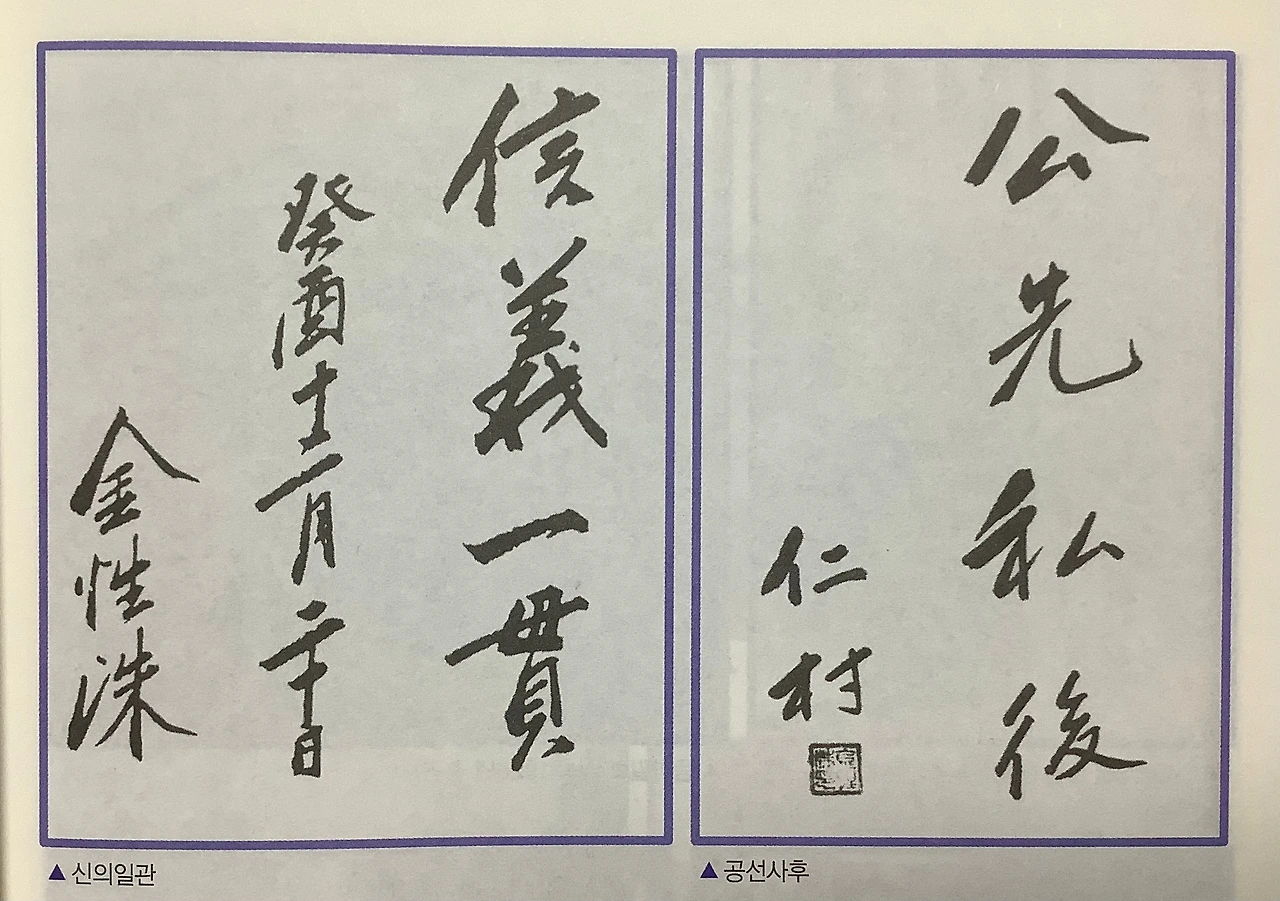 公先私後
仁村
信義一貫
癸酉十二月二十日
金性洙
▲ 신의일관
▲ 공선사후